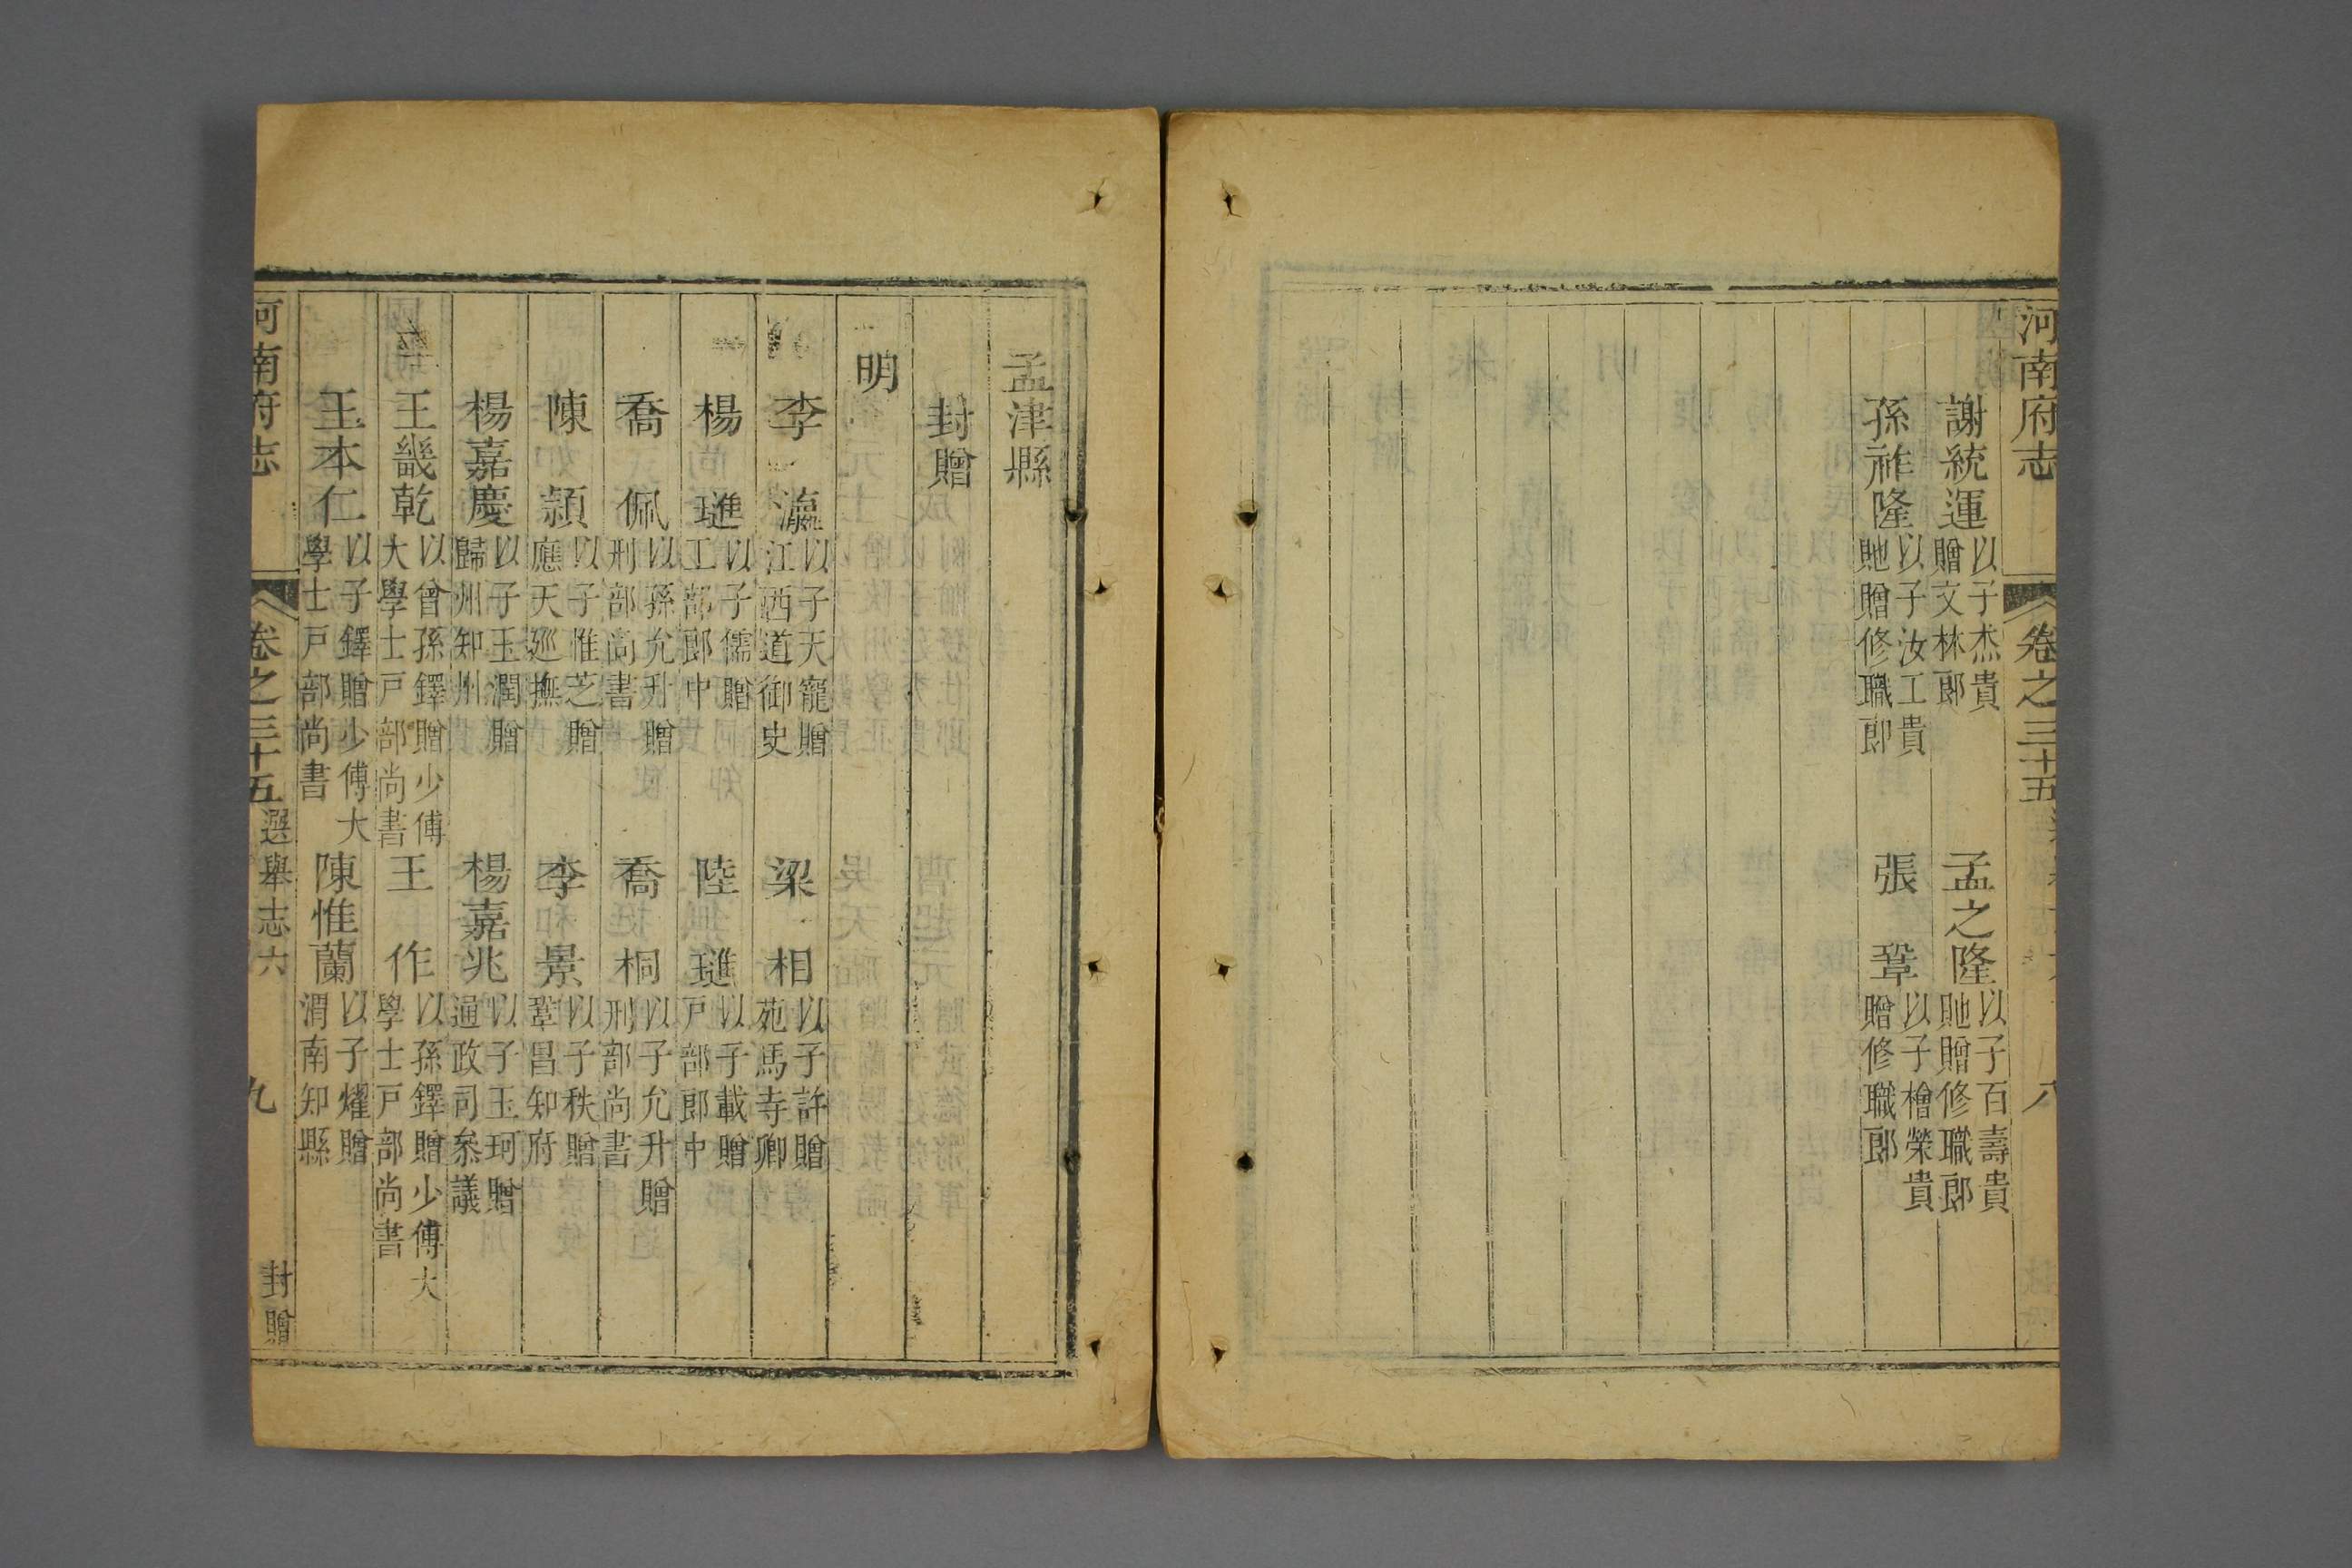 河南府志
卷之三十五
八
謝統運以子杰貴贈文林郎
孟之隆以子百壽貴貤贈修職郎
孫祚隆以子汝工貴貤贈修職郎
張鞏以子檜榮貴贈修職郎
孟津縣
封贈
明
李瀛以子天寵贈江西道御史
梁相以子許贈苑馬寺卿
楊璡以子儒贈工部郎中
陸璡以子載贈戸部郎中
喬佩以孫允升贈刑部尚書
喬桐以子允升贈刑部尚書
陳頴以子惟芝贈應天廵撫
李景以子秩贈鞏昌知府
楊嘉慶以子玉潤贈歸州知州
楊嘉兆以子玉珂贈通政司叅議
王畿乾以曾孫鐸贈少傅大學士戸部尚書
王作以孫鐸贈少傅大學士戸部尚書
王本仁以子鐸贈少傅大學士戸部尚書
陳惟蘭以子燿贈渭南知縣
河南府志
卷之三十五
選舉志六
九
封贈